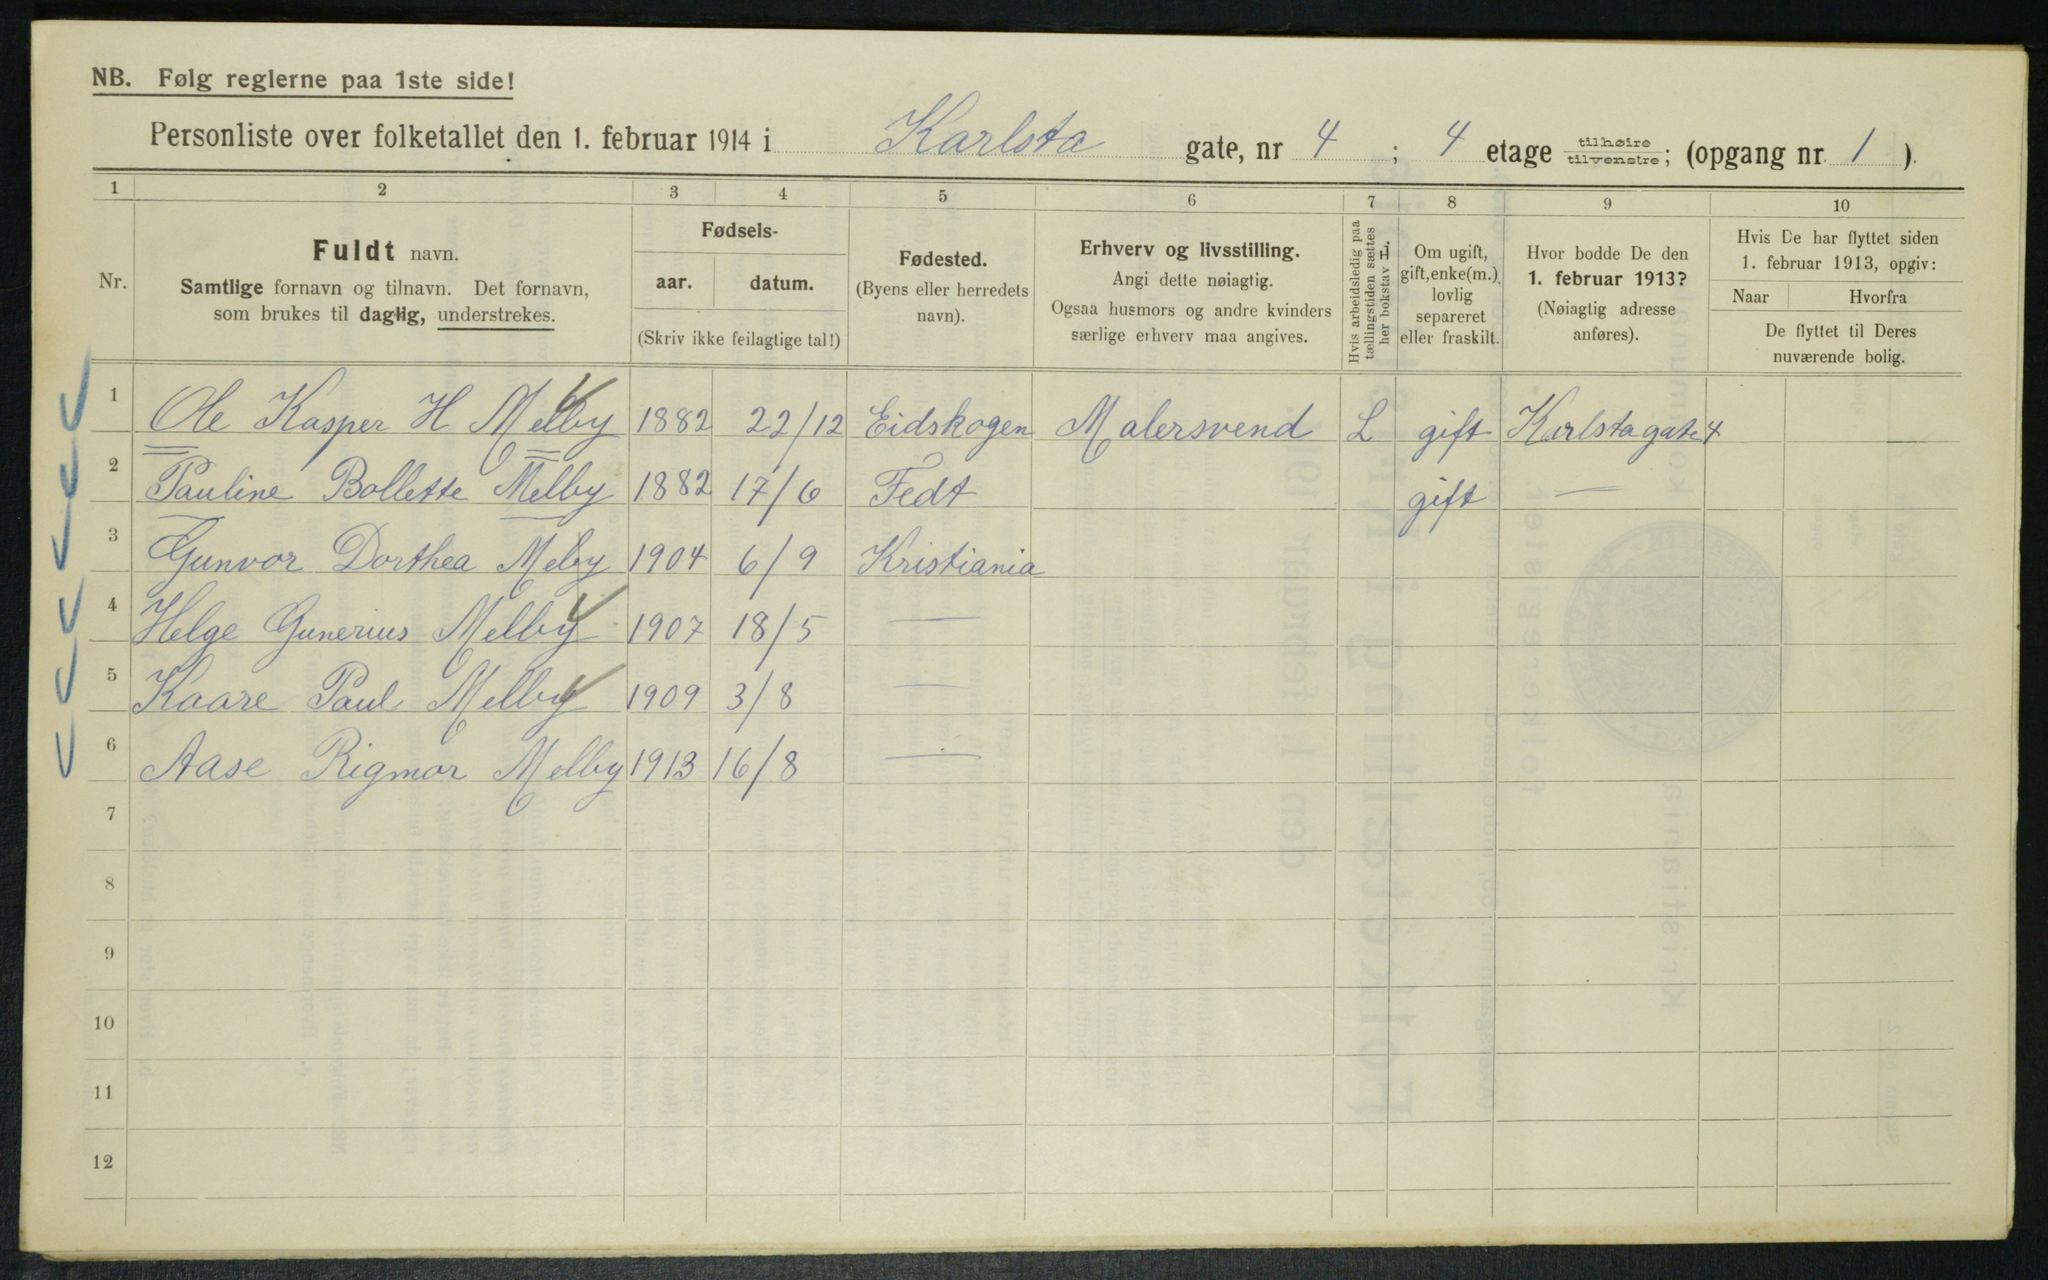 NB. Følg reglerne paa 1ste side!
Personliste over folketallet den 1. februar 1914 i Karlsta gate, nr 4 ; 4 etage tilhøire tilvenstre; (opgang nr 1 ).
1 2 3 4 5 6 7 8 9 10
Nr.
Fuldt navn.
Samtlige fornavn og tilnavn. Det fornavn,
som brukes til daglig, understrekes.
Fødsels-
aar. datum.
(Skriv ikke feilagtige tal!)
Fødested.
(Byens eller herredets
navn).
Erhverv og livsstilling.
Angi dette nøiagtig.
Ogsaa husmors og andre kvinders
særlige erhverv maa angives.
Hvis arbeidsledig paa
tællingstiden sættes
her bokstav L.
Om ugift,
gift, enke(m.),
lovlig
separeret
eller fraskilt.
Hvor bodde De den
1. februar 1913?
(Nøiagtig adresse
anføres).
Hvis De har flyttet siden
1. februar 1913, opgiv:
Naar Hvorfra
De flyttet til Deres
nuværende bolig.
1 Ole Kasper H Melby 1882 22/12 Eidskogen Malersvend L gift Karlstagate 4
2 Pauline Bollette Melby 1882 17/6 Fedt gift —
3 Gunvor Dorthea Meby 1904 6/9 Kristiania
4 Helge Gunerius Melby 1907 18/5 —
5 Kaare Paul Melby 1909 3/8 —
6 Aase Rigmor Melby 1913 16/8 —
7
8
9
10
11
12